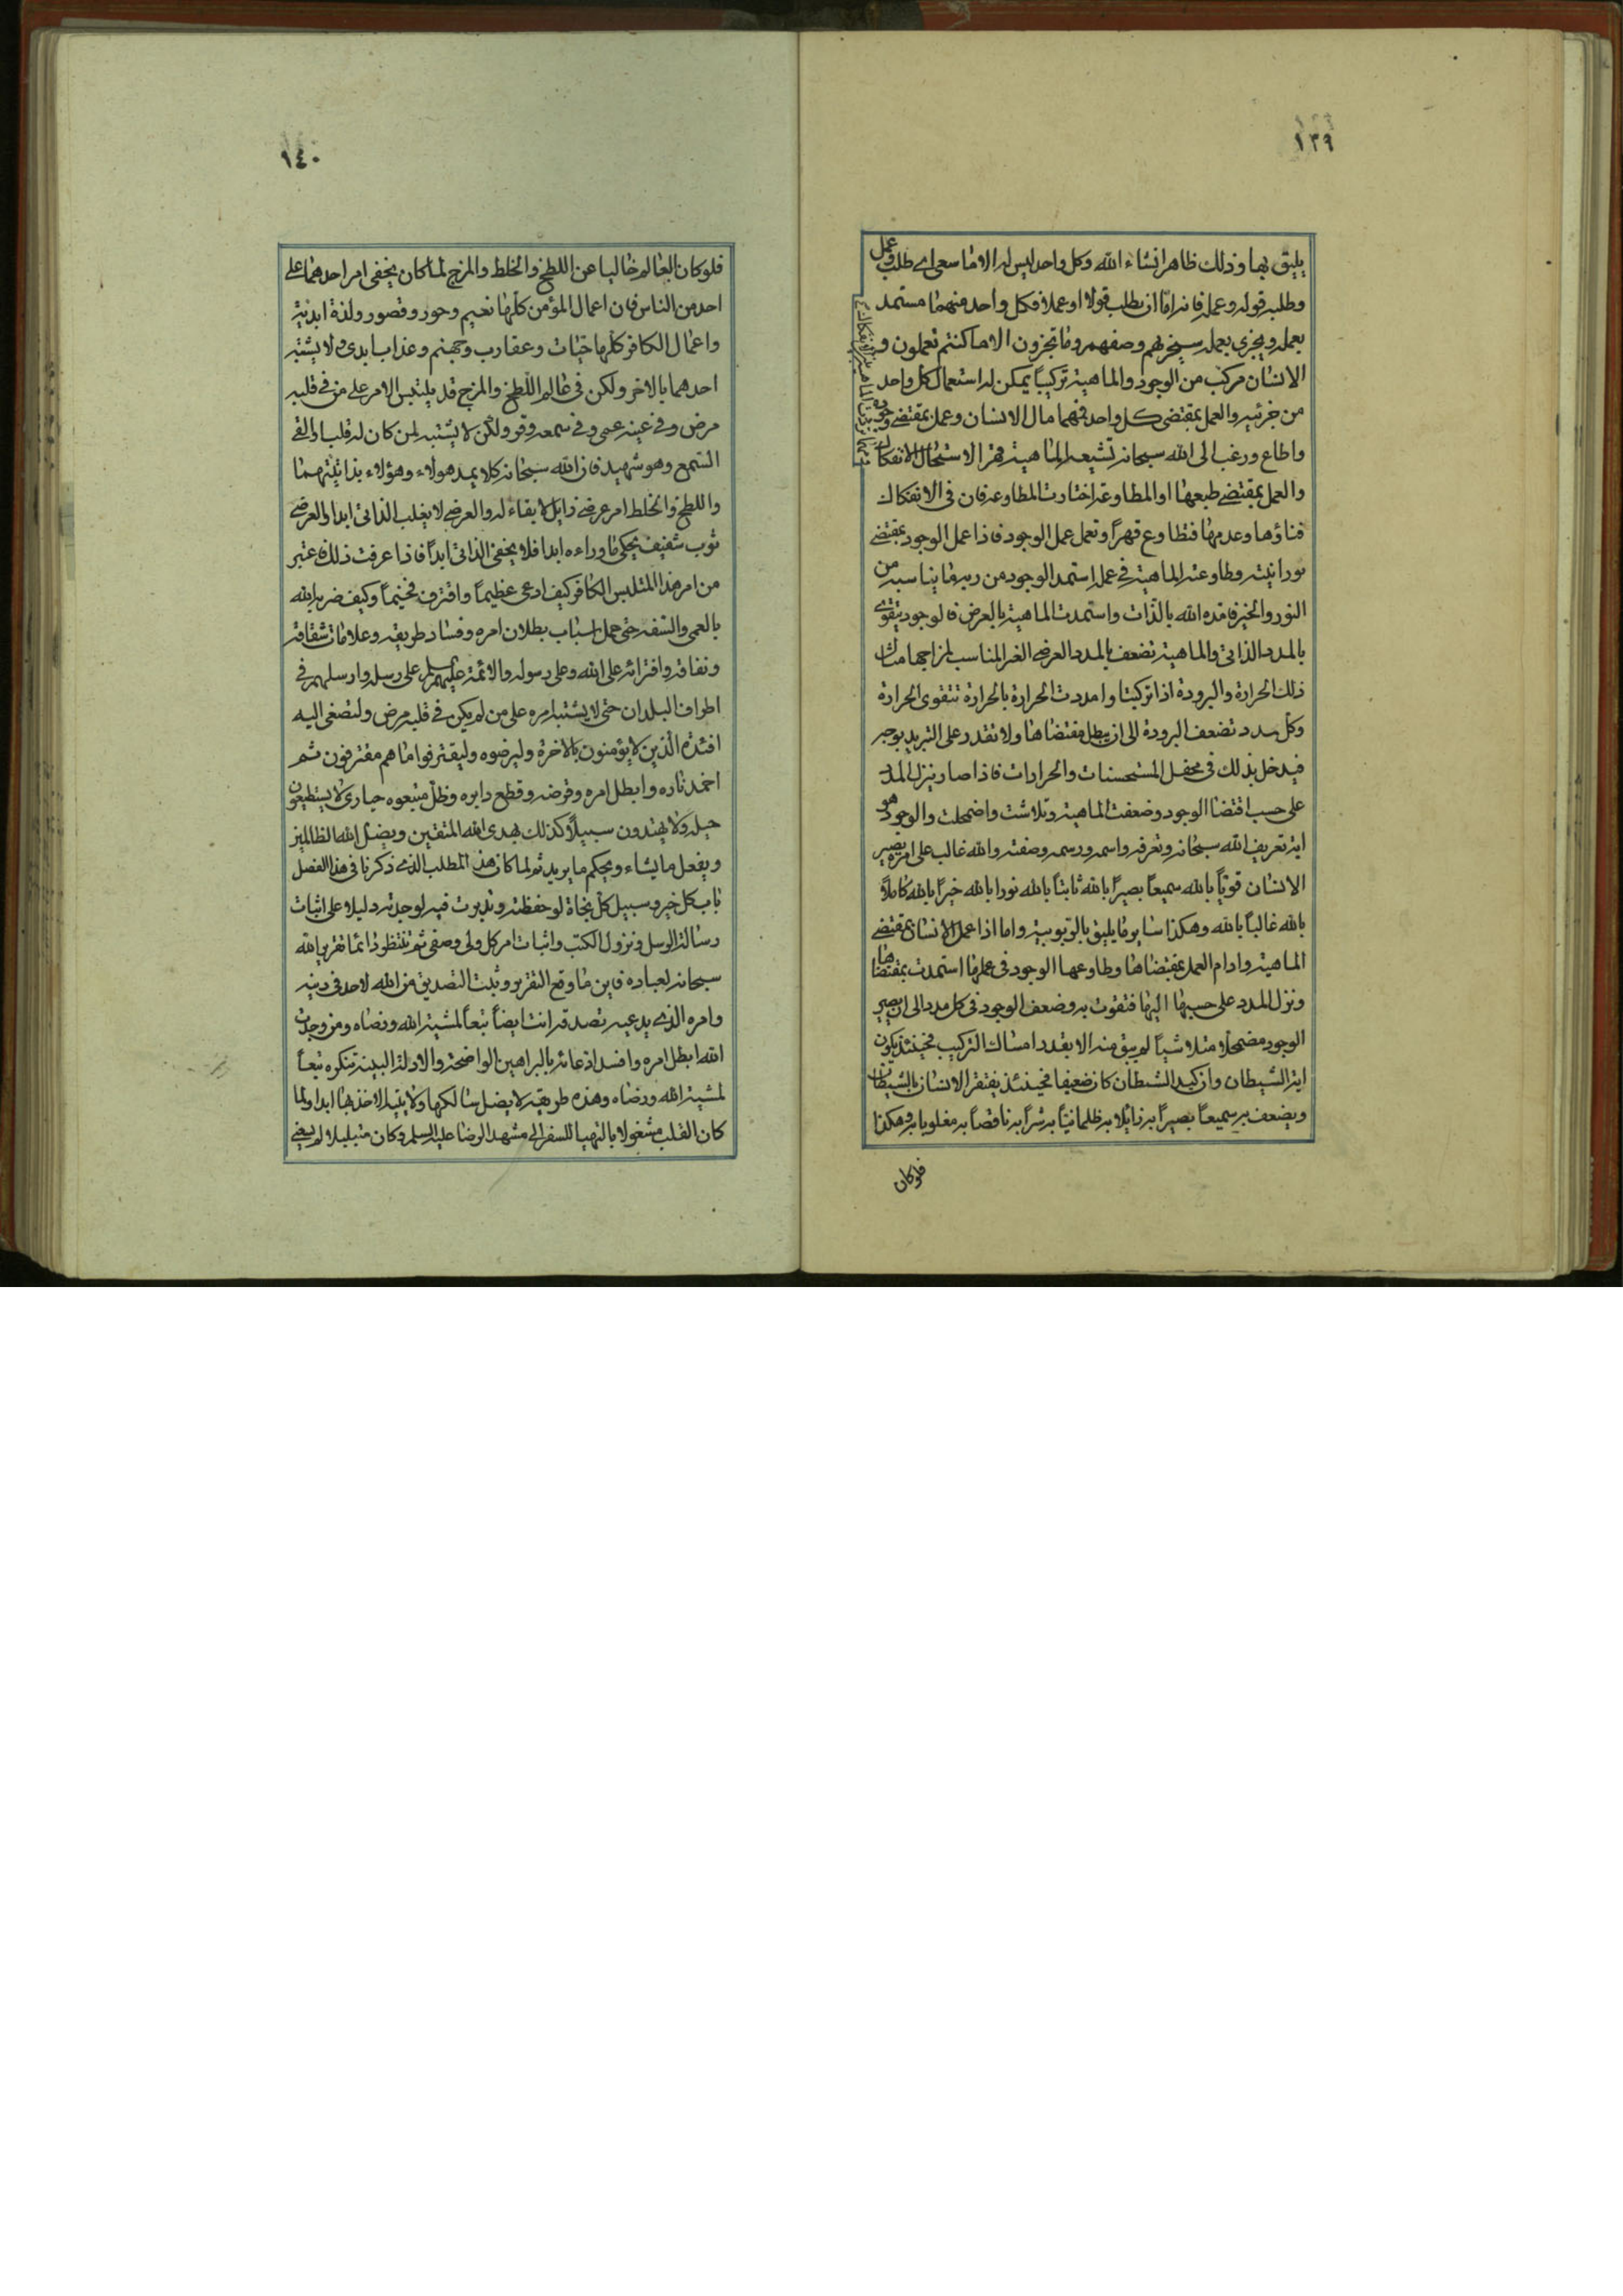 ١٣٩
يليق بها وذلك ظاهر انشاء الله وكل واحد ليس له الا ما سعى اي طلب وعمل
وطلبه قوله وعمله فانه اما ان يطلب قولا او عملا فكل واحد منهما مستمد
بعمله ويجزى بعمله سيجزيهم وصفهم وما تجزون الا ما كنتم تعملون و
الانسان مركب من الوجود والماهية تركيباً يمكن له استعمال كل واحد
من جزئيه والعمل بمقتضى كل واحد فمهما مال الانسان وعمل بمقتضى وجوده
واطاع ورغب الى الله سبحانه تشيعه الماهية قهرا لاستحال الانفكاك
والعمل بمقتضى طبعها او المطاوعة اختارت المطاوعة فان في الانفكاك
فناؤها وعدمها فتطاوع قهراً وتعمل عمل الوجود فاذا عمل الوجود بمقتضى
نورانيته وطاوعته الماهية في عمله استمد الوجود من ربه ما يناسبه من
النور والخير فامده الله بالذات واستمدت الماهية بالعرض فالوجود يتقوى
بالمدد الذاتي والماهية تضعف بالمدد العرضي الغير المناسب لمزاجها مثال
ذلك الحرارة والبرودة اذا تركبتا وامددت الحرارة بالحرارة تتقوى الحرارة
وكل مدد تضعف البرودة الى ان يبطل مقتضاها ولا تقدر على التبريد بوجه
فيدخل بذلك في محفل المستحسنات والحرارات فاذا صار نزل المدد
على حسب اقتضا الوجود وضعفت الماهية وتلاشت واضمحلت والوجود هو
اية تعريف الله سبحانه وتعرفه واسمه ورسمه وصفته والله غالب على امره يصير
الانسان قوياً بالله سميعاً بصيراً بالله ثابتاً بالله نورا بالله خيراً بالله كاملاً
بالله غالباً بالله وهكذا سايرما يليق بالربوبية واما اذا عمل الانسان بمقتضى
الماهية وادام العمل بمقتضاها وطاوعها الوجود في عملها استمدت بمقتضاها
ونزل المدد على حسبها اليها فتقوت به وضعف الوجود في كل مدد الى ان يصير
الوجود مضمحلا متلاشياً لم يبق منه الا بقدر امساك التركيب فحينئذ يكون
اية الشيطان وان كيد الشيطان كان ضعيفا فحينئذ يفتقر الانسان بالشيطان
ويضعف به سميعاً بصيراً به زائلا به ظلمانيّاً به شراً به ناقصاً به مغلوبا به وهكذا
فلو كان
١٤٠
فلو كان العالم خاليا عن اللطخ والخلط والمزج لما كان يخفى امر احدهما على
احد من الناس فان اعمال المؤمن كلها نعيم وحور وقصور ولذة ابدية
واعمال الكافر كلها حيّات وعقارب وجهنم وعذاب ابدي ولا يشتبه
احدهما بالاخر ولكن في عالم اللطخ والمزج قد يلتبس الامر على من في قلبه
مرض وفي عينه عمى وفي سمعه وقر ولكن لا يشتبه لمن كان له قلب او القى
السمع وهو شهيد فان الله سبحانه كلا يمد هولاء وهؤلاء بذاتيتهما
واللطخ والخلط امر عرضي زايل لا بقاء له والعرضي لا يغلب الذاتي ابدا والعرضي
ثوب شفيف يحكي ما وراءه ابدا فلا يخفى الذاتي ابداً فاذا عرفت ذلك فاعتبر
من امر هذا المتلبس الكافر كيف ادعى عظيماً واقترف فخيماً وكيف ضربه الله
بالعمى والسفه حتى حمل اسباب بطلان امره وفساد طريقته وعلامات شقاقه
ونفاقه وافترائه على الله وعلى رسوله والائمة عليهم السلم على رسله وارسلهم في
اطراف البلدان حتى لا يشتبه امره على من لم يكن في قلبه مرض ولتصغى اليه
افئدة الذين لا يؤمنون بالاخرة وليرضوه وليقترفوا ما هم مقترفون ثم
اخمد ناره وابطل امره وقرضه وقطع دابره وظل متبعوه حيارى لا يستطيعون
حيلة ولا يهتدون سبيلاً كذلك يهدي الله المتقين ويضل الله الظالمين
ويفعل ما يشاء ويحكم ما يريد ثم لما كان هذا المطلب الذي ذكرنا في هذا الفصل
باب كل خير وسبيل كل نجاة لو حفظته وتدبرت فيه لوجدته دليلا على اثبات
رسالة الرسل ونزول الكتب واثبات امر كل ولي وصفي ثم تنتظر دائما تقرير الله
سبحانه لعباده فاين ما وقع التقرير وثبت التصديق من الله لاحد في دينه
وامره الذي يدعيه تصدقه انت ايضاً تبعاً لمشية الله ورضاه ومن وجدت
الله ابطل امره وافسد ادعائه بالبراهين الواضحة والادلة البينة تنكره تبعاً
لمشية الله ورضاه وهذه طريقة لا يضل سالكها ولا يتيه الاخذ بها ابدا ولما
كان القلب مشغولا بالتهيا للسفر الى مشهد الرضا عليه السلم وكان متبلبلا لم